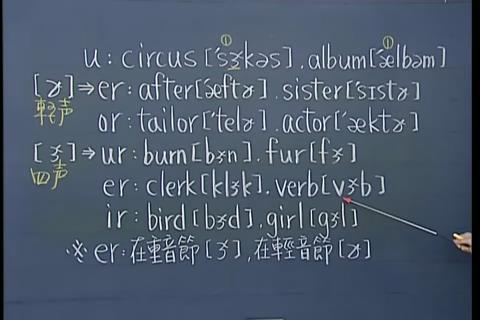 ① ①
u: circus ['sɝkəs]. album ['ælbəm]
[ɚ]⇒er: after ['æftɚ]. sister ['sɪstɚ]
輕声 or: tailor ['telɚ]. actor ['æktɚ]
[ɝ]⇒ur: burn [bɝn]. fur [fɝ]
四声 er: clerk [klɝk]. verb [vɝb]
ir: bird [bɝd]. girl [gɝl]
※ er: 在重音節 [ɝ], 在輕音節 [ɚ]